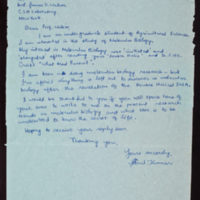 Prof. James D. Watson
CSH Laboratory,
New York.
Dear Prof. Watson,
I am an undergraduate student of Agricultural Sciences.
I am interested in the study of Molecular Biology.
My interest in Molecular Biology was initiated and
after reading your double helix and
Crick's "What Mad Pursuit".
I am keen doing molecular biology research - but
I'm afraid anything is left out to in molecular
biology after the revelation of the Double Helical DNA.
I would be thankful to you if you will spare few of
your time to write to me on the present research
trends in molecular biology and what else is to be
understood to know the secret of life.
Hoping to receive your reply soon.
Thanking you,
Yours sincerely,